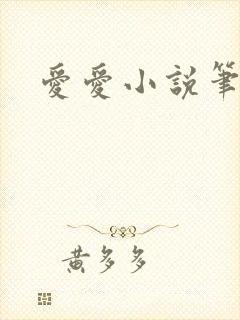 愛愛小說筆
黃多多